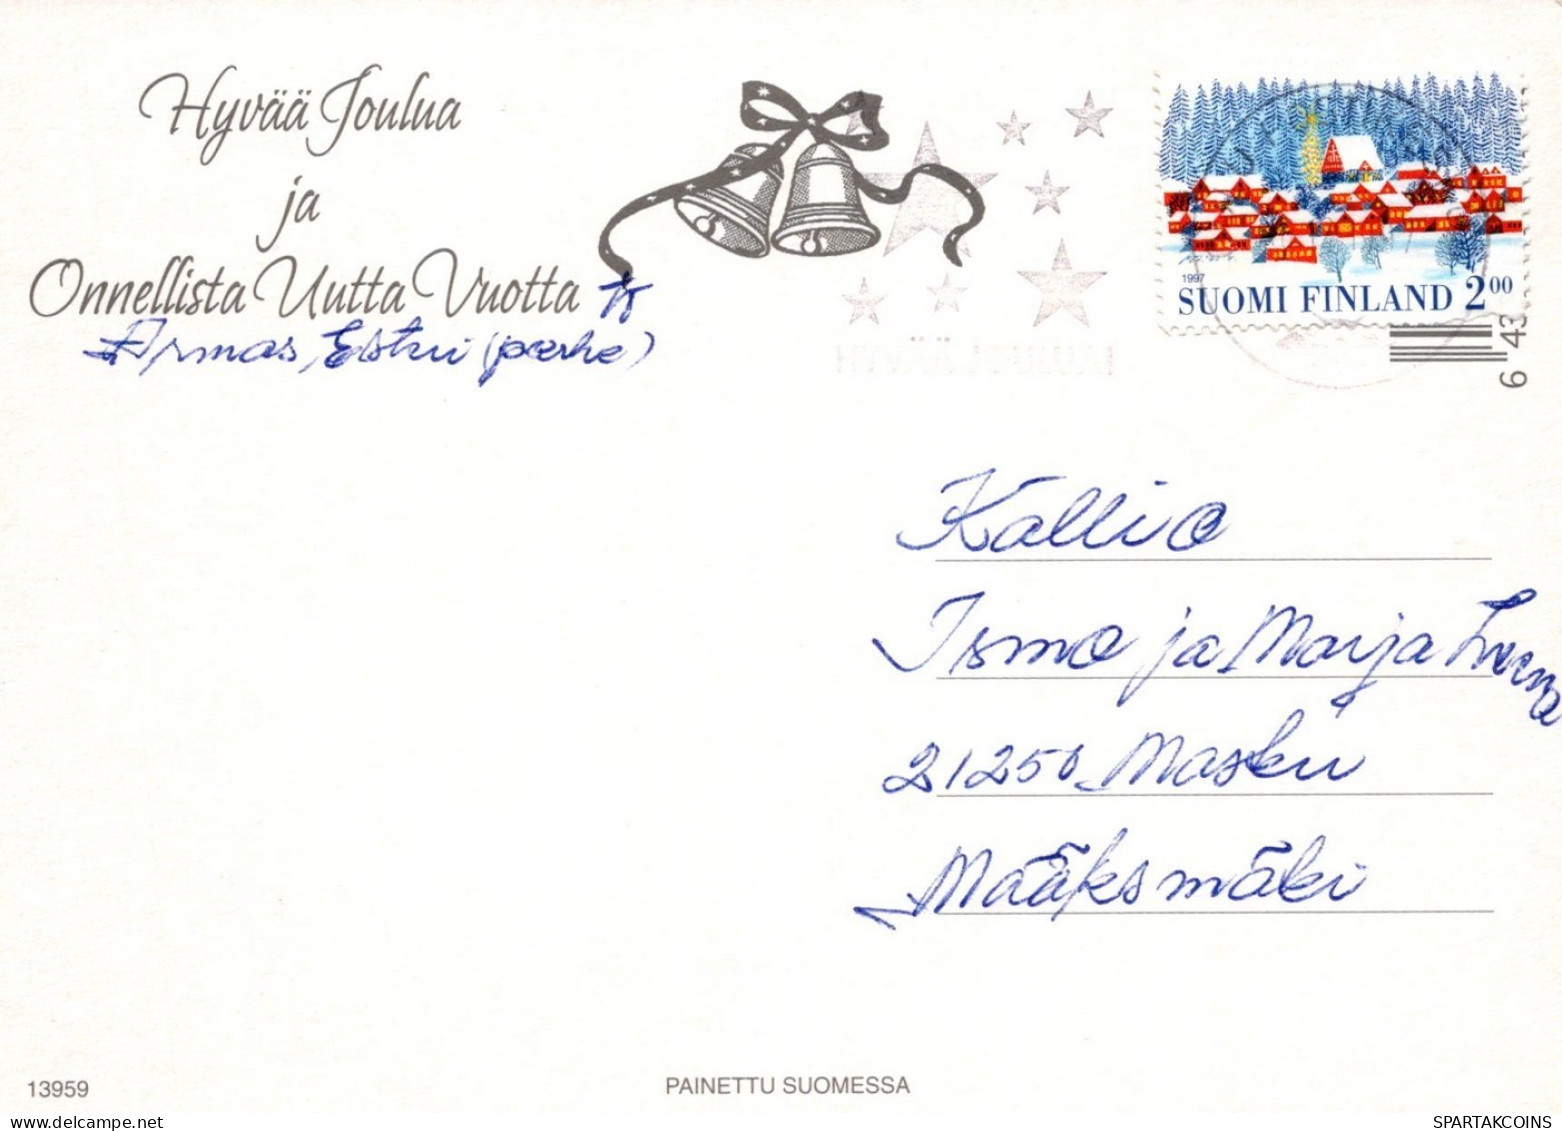 Hyvää Joulua
ja
Onnellista Uutta Vuotta
Armas, (perhe)
HYVÄÄ JOULUA
1997
SUOMI FINLAND 2 00
6 43
Kallio
Ismo ja Marja Leena
21250 Masku
Määksmäki
13959
PAINETTU SUOMESSA
SPARTAKCOINS